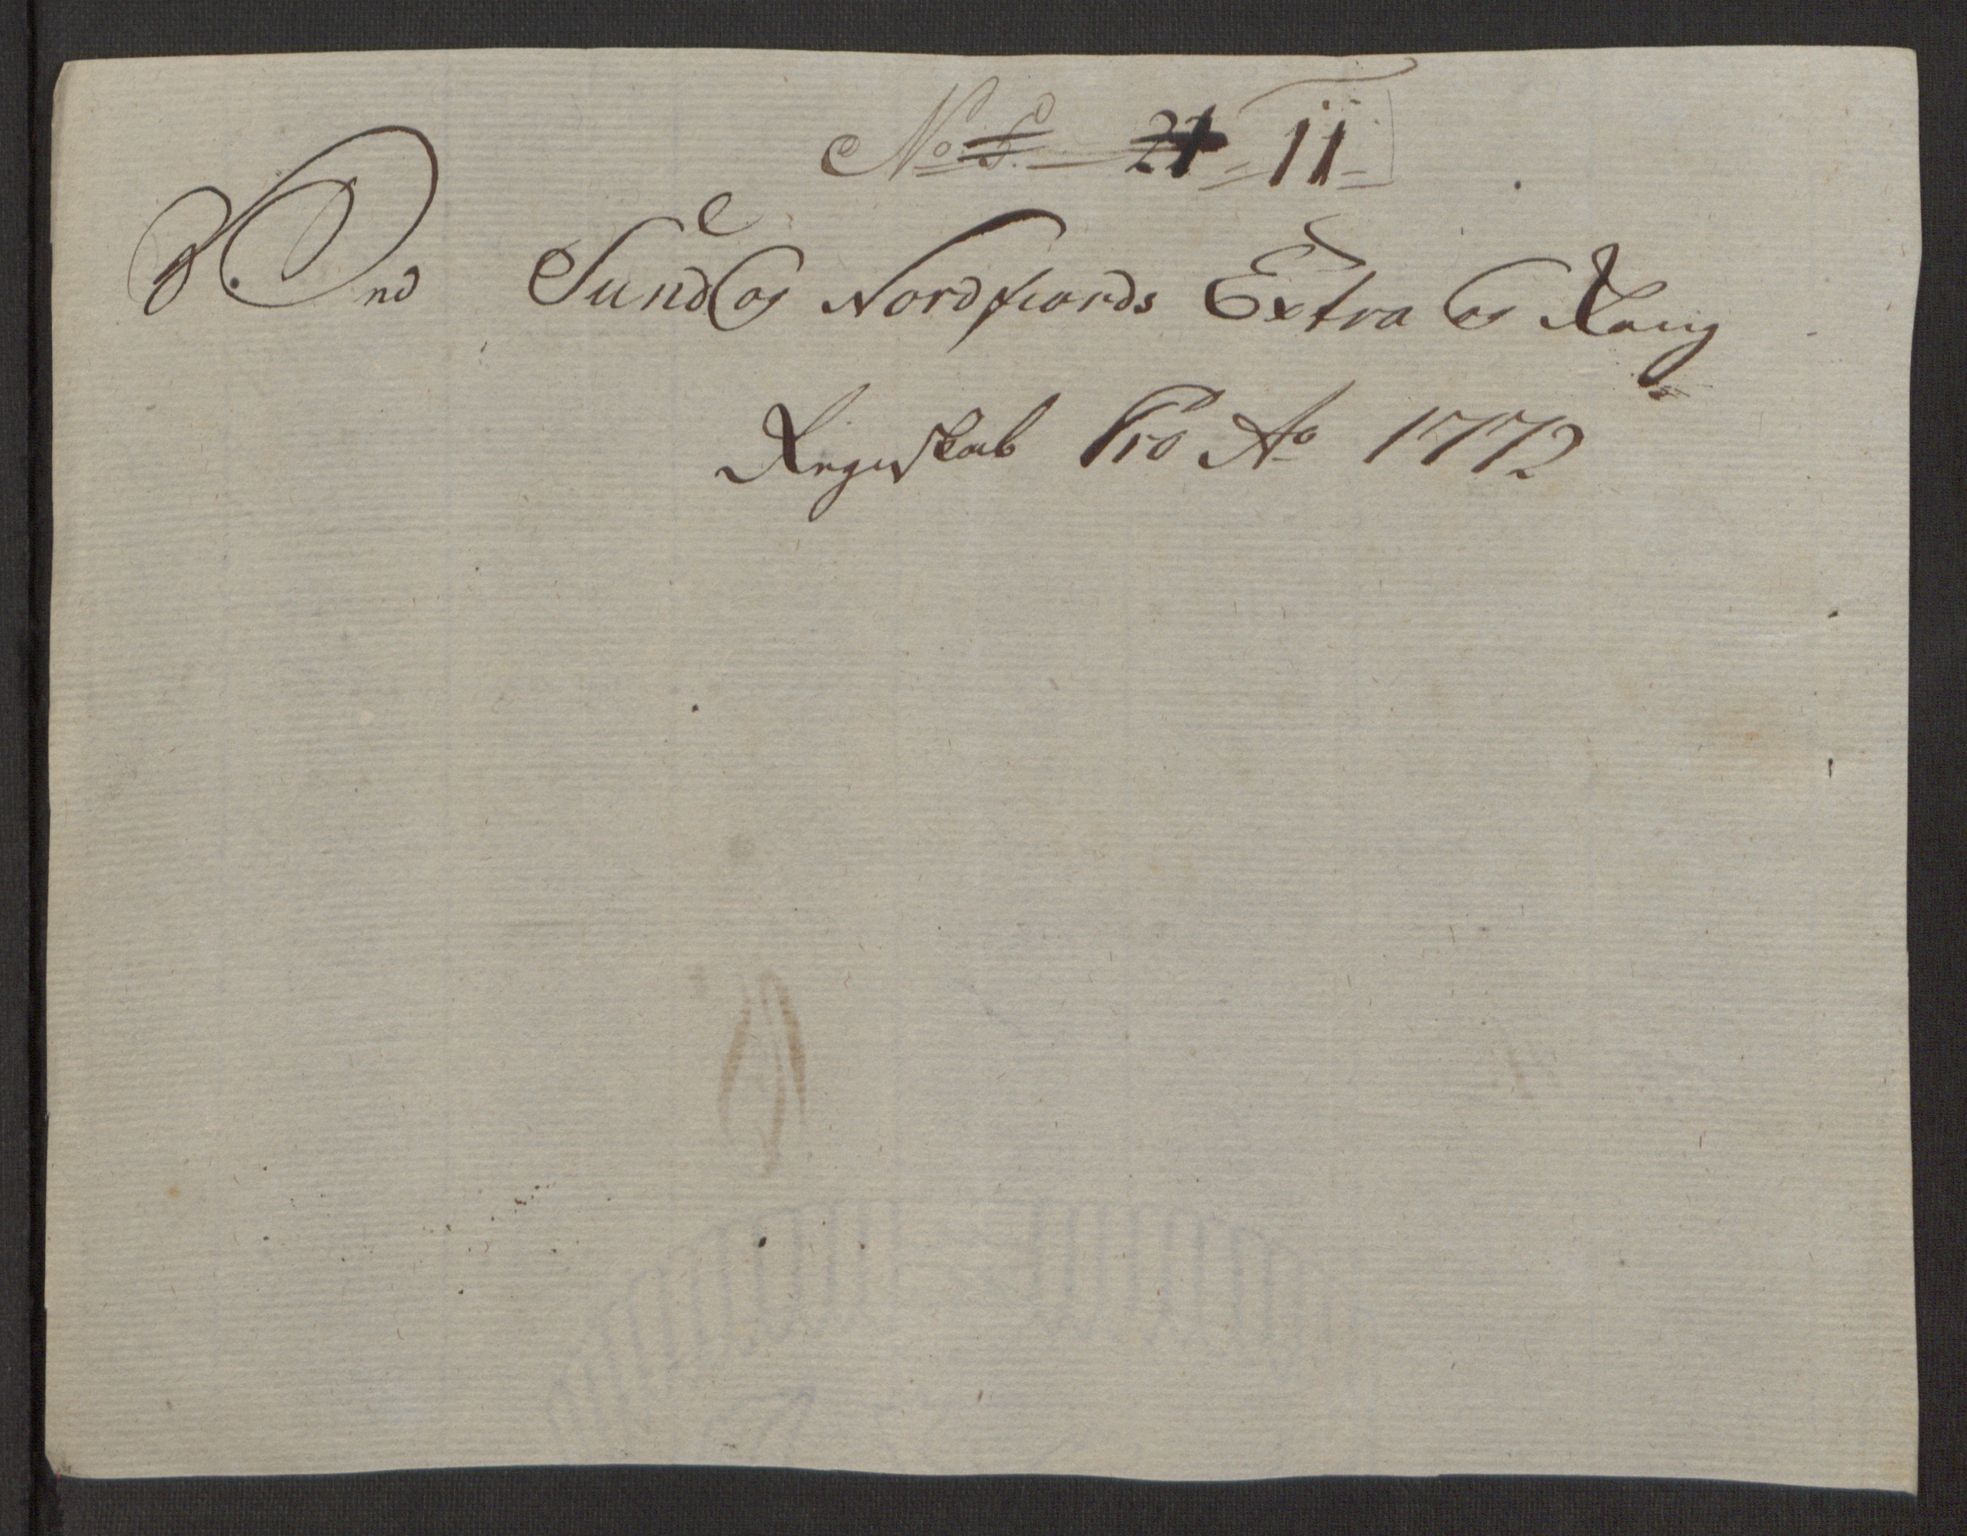 No 6. 21 11
Ond Sund og Nordfiords Extra og Rang
Regnskab Pro Ao 1772